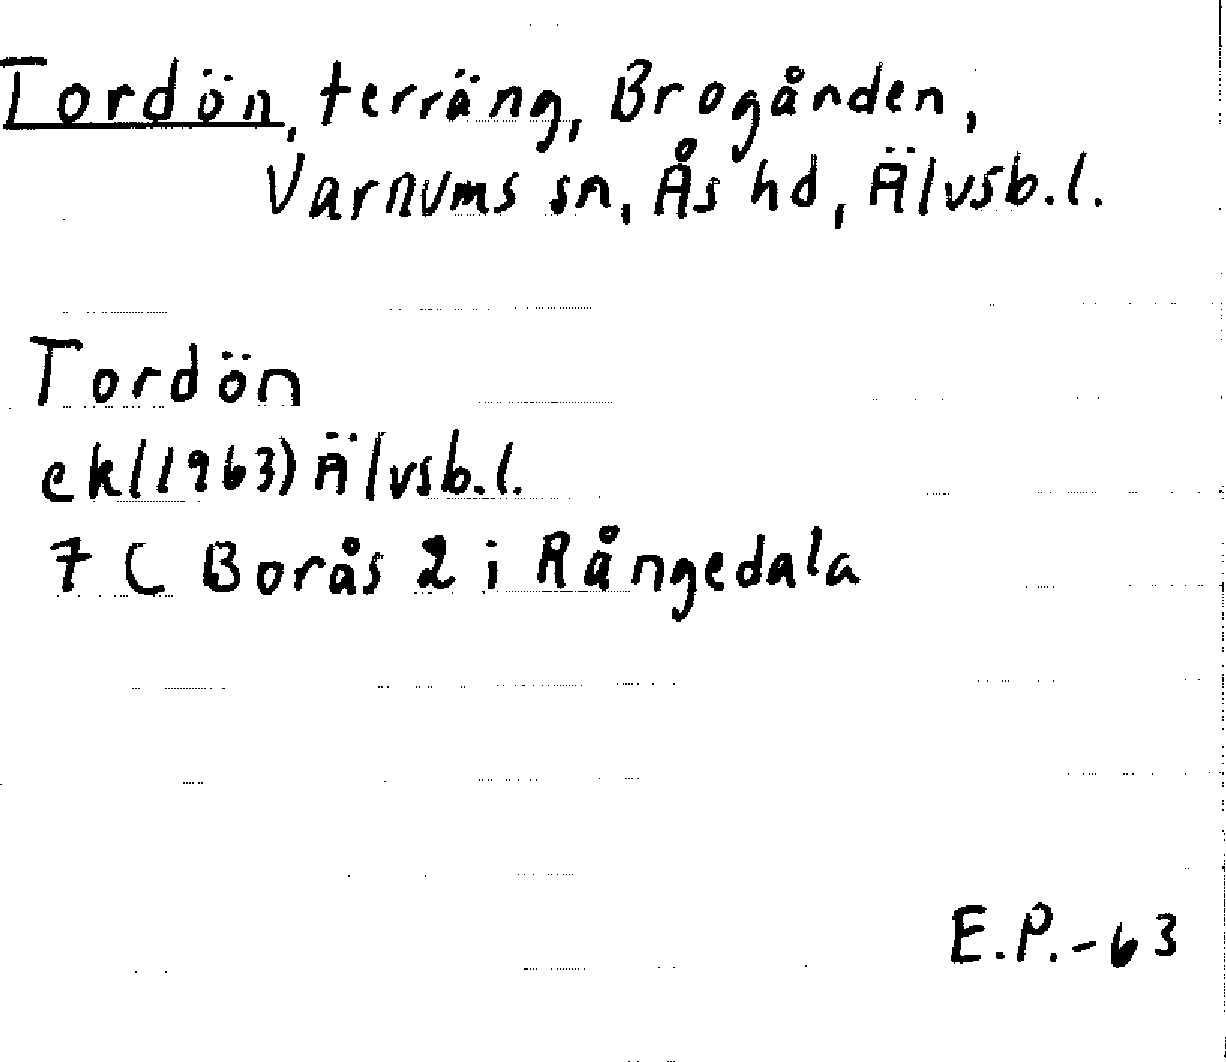 Tordön, terräng, Brogånden,
Varnums sn, Ås hd, Älvsb.l.
Tordön
ek(1963) Älvsb.l.
7 C Borås 2 i Rångedala
E.P.-63